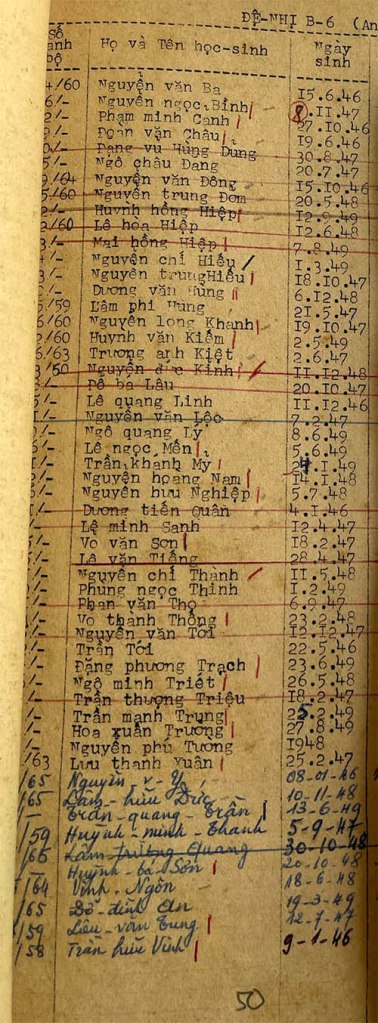 ĐỆ-NHỊ B-6 (An
Số
anh
bộ Họ và Tên học-sinh Ngày
sinh
4/60 Nguyễn văn Ba 15.6.46
6/- Nguyễn ngọc Bính 8.11.47
2/- Phạm minh Cảnh 27.10.46
/- Đoàn văn Châu 19.6.46
0/- Đặng vũ Hùng Dũng 30.8.47
5/- Ngô châu Đang 20.7.47
9/64 Nguyễn văn Đông 15.10.46
5/60 Nguyễn trung Đơm 20.5.48
2/- Huỳnh hồng Hiệp 12.9.49
0/60 Lê hòa Hiệp 12.6.48
3/- Mai hồng Hiệp 7.8.49
/- Nguyễn chí Hiếu 1.3.49
/- Nguyễn trung Hiếu 18.10.47
/- Dương văn Hùng 6.12.48
5/59 Lâm phi Hùng 21.5.47
6/60 Nguyễn long Khanh 19.10.47
2/60 Huỳnh văn Kiểm 2.5.49
6/63 Trương anh Kiệt 2.6.47
3/60 Nguyễn đức Kính 11.12.48
/- Đỗ bá Lâu 20.10.47
5/- Lê quang Linh 11.12.46
/- Nguyễn văn Lộc 7.2.47
/- Ngô quang Lý 8.6.49
/- Lê ngọc Mến 5.6.49
/- Trần khánh Mỹ 24.1.49
/- Nguyễn hoàng Nam 14.1.48
/- Nguyễn hữu Nghiệp 5.7.48
/- Dương tiến Quân 4.1.46
/- Lê minh Sanh 12.4.47
/- Võ văn Sơn 18.2.47
/- Lê văn Tiếng 28.4.47
/- Nguyễn chí Thành 11.5.48
/- Phùng ngọc Thinh 1.2.49
/- Phan văn Thọ 6.9.47
/- Võ thành Thông 23.2.48
/- Nguyễn văn Tới 12.12.47
/- Trần Tới 22.5.46
/- Đặng phương Trạch 23.6.49
/- Ngô minh Triết 26.5.48
/- Trần thượng Triệu 18.2.47
/- Trần mạnh Trung 25.2.49
/- Hoa xuân Trương 27.8.49
/- Nguyễn phú Tương 1948
/63 Lưu thanh Xuân 25.2.47
/65 Nguyễn - v - Ý 08-01-46
/65 Lâm - hữu Đức 10-11-48
/- Trần - quang - Trân 13-6-49
/59 Huỳnh - minh - Thanh 5-9-47
/66 Lâm trường Quang 30-10-48
/- Huỳnh - bá - Sơn 20-10-48
/64 Vĩnh - Ngôn 18-6-48
/65 Đỗ - đình An 19-3-49
/59 Liêu - văn Tung 12-7-47
/58 Trần hữu Vinh 9-1-46
50